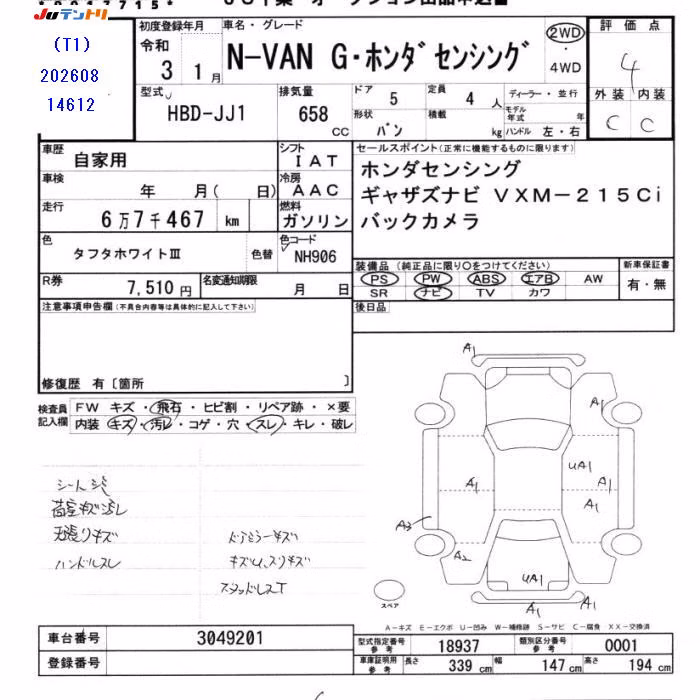 Juテントリ
(T1)
202608
14612
初度登録年月
令和
3 1月
車名・グレード
N-VAN G・ホンダセンシング
2WD
・
4WD
評価点
4
外装 内装
C C
型式
HBD-JJ1
排気量
658 CC
ドア 5
定員 4 人
形状 バン
積載 kg
ディーラー・並行
モデル年式 年
ハンドル 左・右
車歴
自家用
シフト
IAT
車検
年 月( 日)
冷房
AAC
走行
6万7千467 km
燃料
ガソリン
色
タフタホワイトⅢ 色替
色コード
NH906
R券
7,510円
名変通知期限
月 日
セールスポイント(正常に機能するものに限ります)
ホンダセンシング
ギャザズナビ VXM-215Ci
バックカメラ
装備品(純正品に限り○をつけてください)
PS PW ABS エアB AW
SR ナビ TV カワ
新車保証書
有・無
後日品
注意事項申告欄(不具合内容等は具体的に記入して下さい)
修復歴 有〔箇所 〕
検査員記入欄
FW キズ・飛石・ヒビ割・リペア跡・×要
内装 キズ・汚レ・コゲ・穴・スレ・キレ・破レ
シート汚
荷室キズ汚レ
内張りキズ
ハンドルスレ
ドアミラーキズ
キズU、スリキズ
スタッドレスT
A1
A1
A1
UA1
A1
A1
A3
A2
UA1
A1
A1
スペア
A-キズ E-エクボ U-凹み W-補修跡 S-サビ C-腐食 XX-交換済
車台番号 3049201
登録番号
型式指定番号 参考 18937
類別区分番号 参考 0001
車庫証明用 参考 長さ 339 cm 幅 147 cm 高さ 194 cm